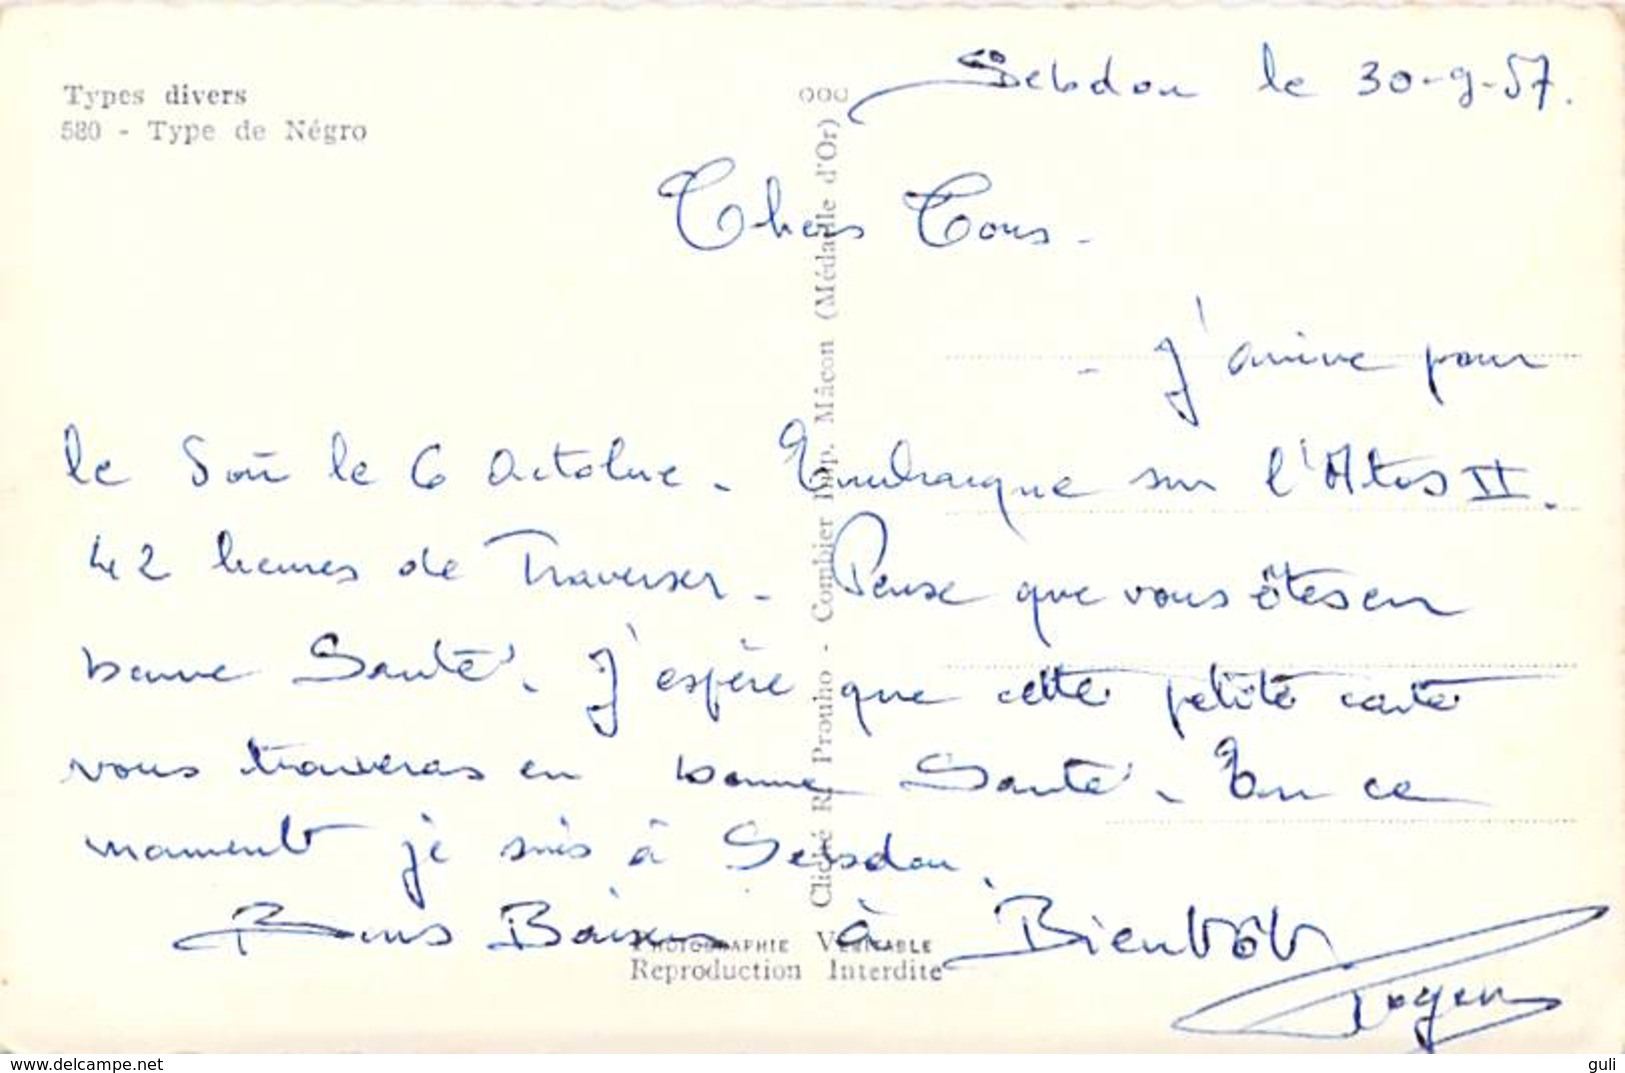 Types divers
580 - Type de Négro
Sebdou le 30-9-57.
Chers Tous -
- J'arrive pour
le Soir le 6 Octobre - Embarque sur l'Athos II.
42 heures de Traverser - Pense que vous êtes en
bonne Santé. J'espère que cette petite carte
vous trouveras en bonne Santé - En ce
moment je suis à Sebdou.
Bons Baisers à Bientôt
Roger
Cliché R. Prouho - Combier Imp. Mâcon (Médaille d'Or)
Photographie Véritable
Reproduction Interdite
https://www.delcampe.net
guli